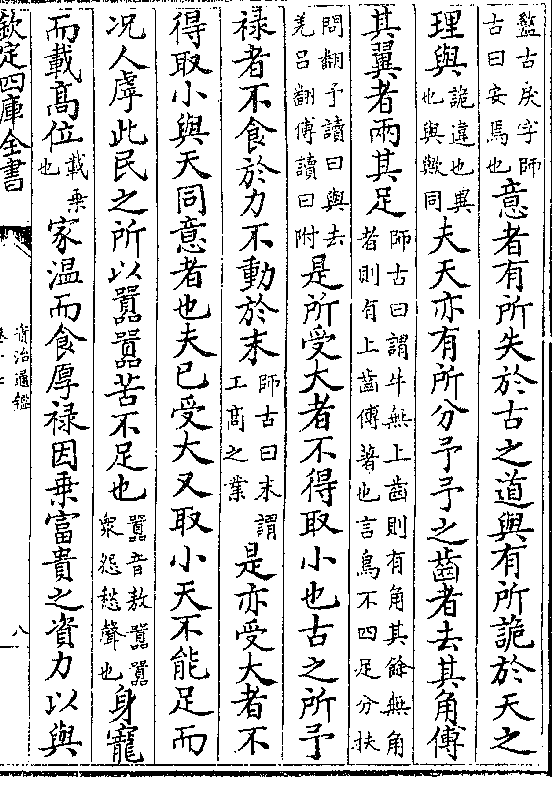 盭古戾字師
古曰安焉也
意者有所失於古之道與有所詭於天之
理與
詭違也與
也與歟同
夫天亦有所分予予之齒者去其角傅
其翼者兩其足
師古曰謂牛無上齒則有角其餘無角
者則有上齒傅著也言鳥不四足分扶
問翻予讀曰與去
羌吕翻傅讀曰附
是所受大者不得取小也古之所予
禄者不食於力不動於末
師古曰末謂
工商之業
是亦受大者不
得取小與天同意者也夫已受大又取小天不能足而
況人虖此民之所以嚻嚻苦不足也
嚻音敖嚻嚻
衆怨愁聲也
身寵
而載髙位
載乗
也
家温而食厚禄因乗富貴之資力以與
欽定四庫全書
資治通鑑
八